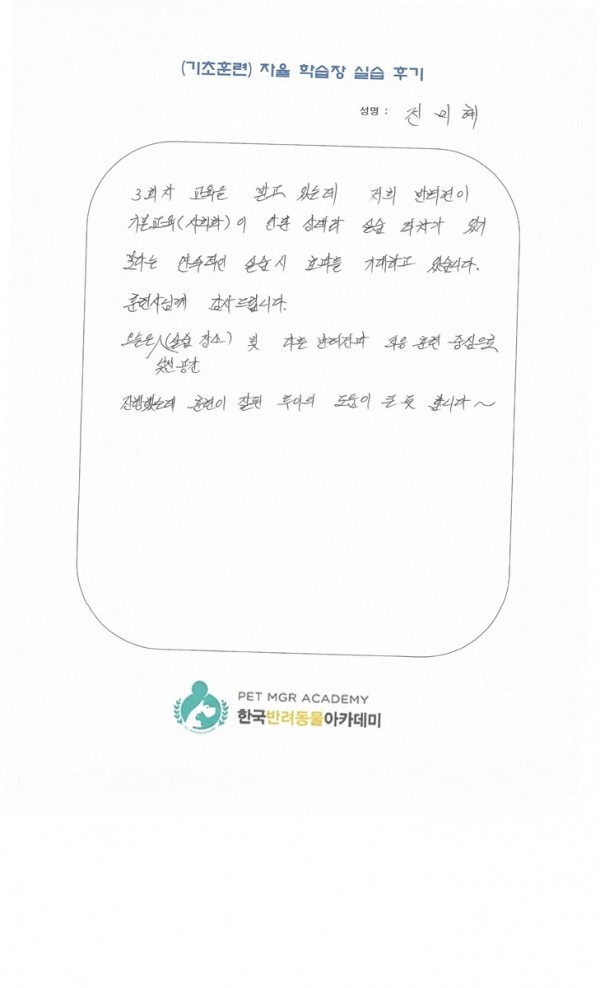 (기초훈련) 자율 학습장 실습 후기
성명 : 진미혜
3회차 교육을 받고 있는데 저희 반려견이
기본교육(사회화)이 안된 상태라 실습 격차가 있어
보다는 연속적인 실습시 효과를 기대하고 있습니다.
훈련사님께 감사드립니다.
오늘은 낯선 공간 (실습 장소) 및 다른 반려견과 적응 훈련 중심으로
진행했는데 훈련이 잘된 투아의 도움이 큰 듯 합니다~
PET MGR ACADEMY
한국반려동물아카데미